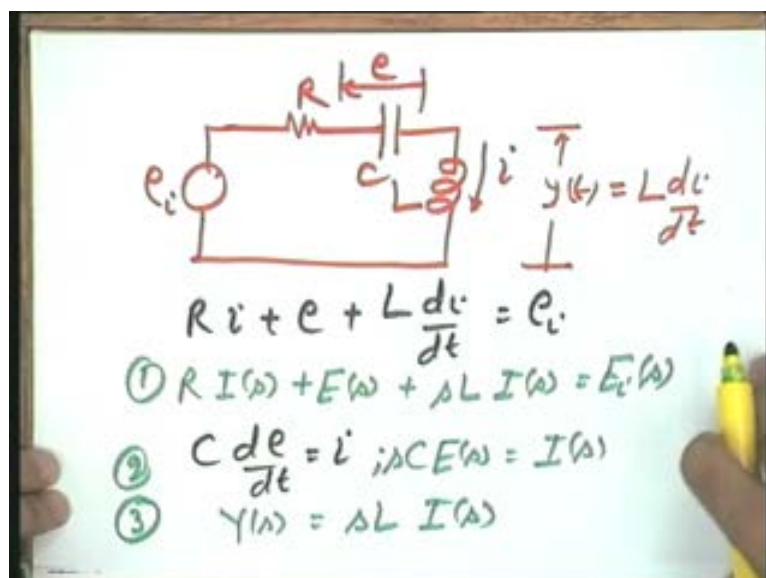 e
R
e_i
C
L
i
y(t) = L di/dt
R i + e + L di/dt = e_i
① R I(s) + E(s) + sL I(s) = E_i(s)
② C de/dt = i ; sCE(s) = I(s)
③ Y(s) = sL I(s)